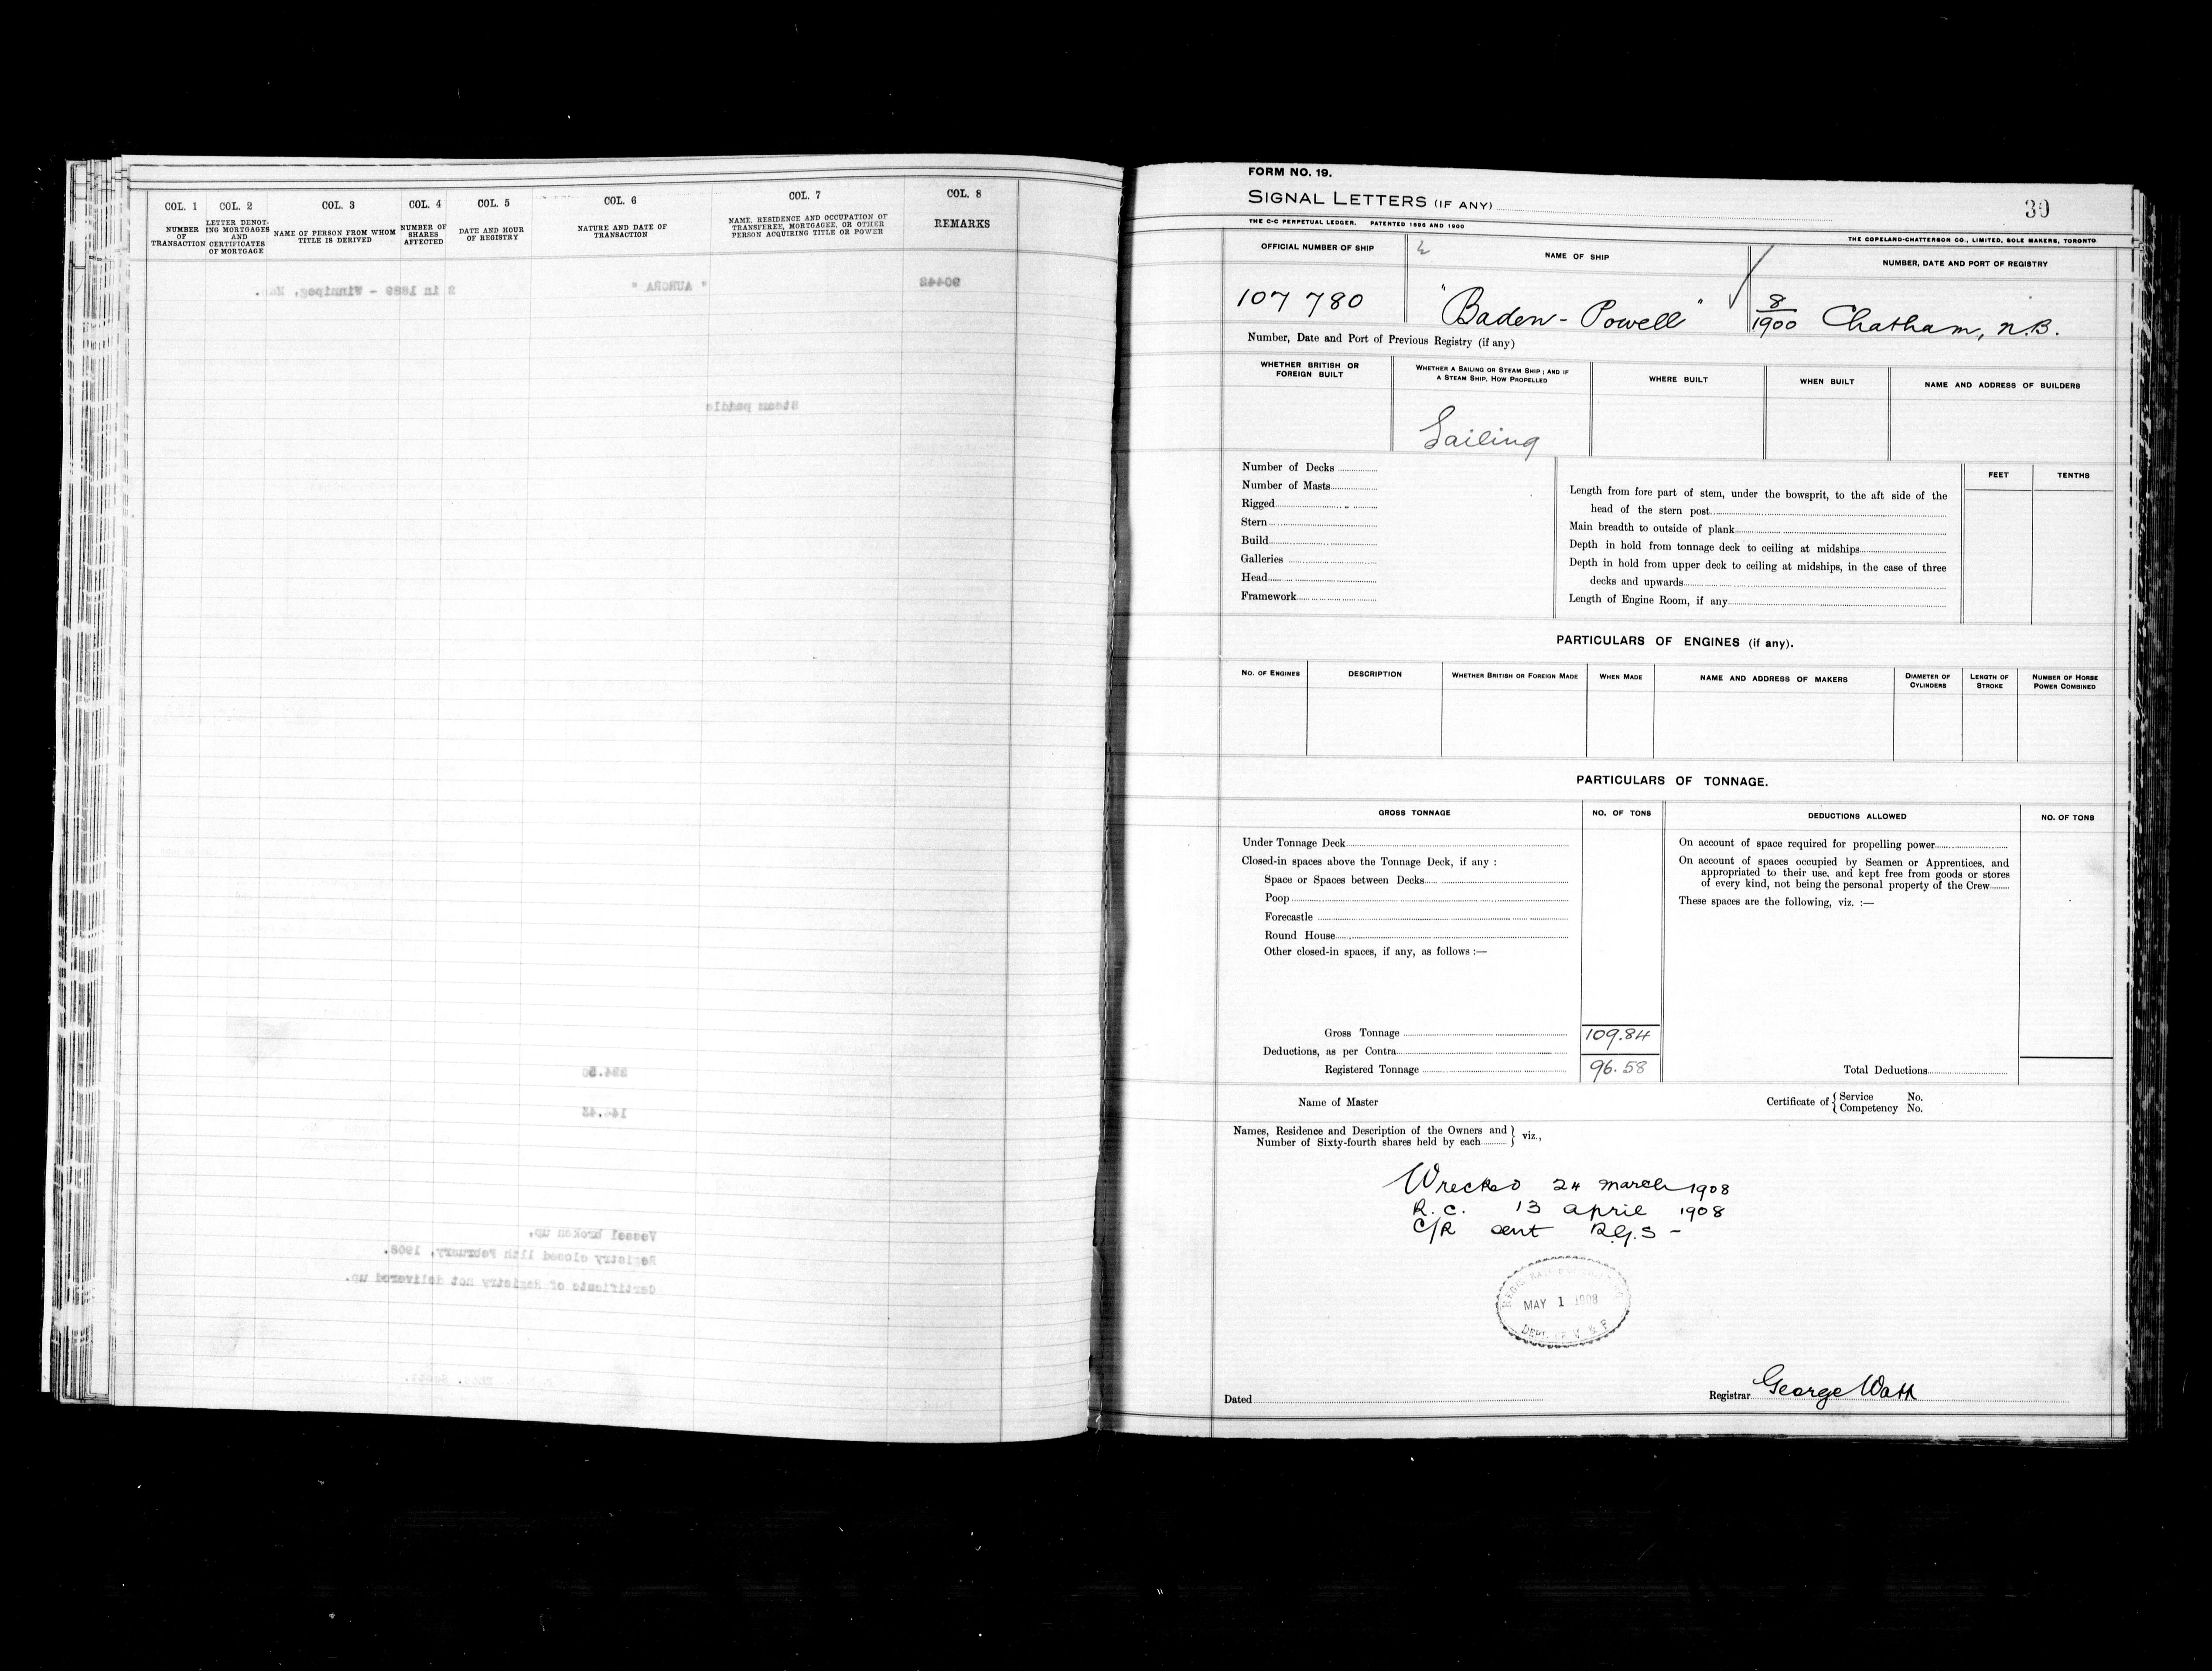 COL. 1 COL. 2 COL. 3 COL. 4 COL. 5 COL. 6 COL. 7 COL. 8
NUMBER OF TRANSACTION
LETTER DENOTING MORTGAGES AND CERTIFICATES OF MORTGAGE
NAME OF PERSON FROM WHOM TITLE IS DERIVED
NUMBER OF SHARES AFFECTED
DATE AND HOUR OF REGISTRY
NATURE AND DATE OF TRANSACTION
NAME, RESIDENCE AND OCCUPATION OF TRANSFEREE, MORTGAGEE, OR OTHER PERSON ACQUIRING TITLE OR POWER
REMARKS
90442 " AURORA " 2 in 1889 - Winnipeg,
Steam paddle
Vessel broken up,
Registry closed 11th February, 1908.
Certificate of Registry not delivered up.
FORM NO. 19.
SIGNAL LETTERS (IF ANY)
30
THE C-C PERPETUAL LEDGER. PATENTED 1896 AND 1900
THE COPELAND-CHATTERSON CO., LIMITED, SOLE MAKERS, TORONTO
OFFICIAL NUMBER OF SHIP NAME OF SHIP NUMBER, DATE AND PORT OF REGISTRY
107 780 "Baden-Powell" 8/1900 Chatham, N.B.
Number, Date and Port of Previous Registry (if any)
WHETHER BRITISH OR FOREIGN BUILT
WHETHER A SAILING OR STEAM SHIP; AND IF A STEAM SHIP, HOW PROPELLED
WHERE BUILT
WHEN BUILT
NAME AND ADDRESS OF BUILDERS
Sailing
Number of Decks
Number of Masts
Rigged
Stern
Build
Galleries
Head
Framework
FEET TENTHS
Length from fore part of stem, under the bowsprit, to the aft side of the
head of the stern post
Main breadth to outside of plank
Depth in hold from tonnage deck to ceiling at midships
Depth in hold from upper deck to ceiling at midships, in the case of three
decks and upwards
Length of Engine Room, if any
PARTICULARS OF ENGINES (if any).
NO. OF ENGINES DESCRIPTION WHETHER BRITISH OR FOREIGN MADE WHEN MADE NAME AND ADDRESS OF MAKERS DIAMETER OF CYLINDERS LENGTH OF STROKE NUMBER OF HORSE POWER COMBINED
PARTICULARS OF TONNAGE.
GROSS TONNAGE NO. OF TONS DEDUCTIONS ALLOWED NO. OF TONS
Under Tonnage Deck
Closed-in spaces above the Tonnage Deck, if any :
Space or Spaces between Decks
Poop
Forecastle
Round House
Other closed-in spaces, if any, as follows :—
Gross Tonnage 109.84
Deductions, as per Contra
Registered Tonnage 96.58
On account of space required for propelling power
On account of spaces occupied by Seamen or Apprentices, and
appropriated to their use, and kept free from goods or stores
of every kind, not being the personal property of the Crew
These spaces are the following, viz. :—
Total Deductions
Name of Master
Certificate of { Service No.
{ Competency No.
Names, Residence and Description of the Owners and
Number of Sixty-fourth shares held by each } viz.,
Wrecked 24 March 1908
R.C. 13 April 1908
C/R sent R.G.S -
MAY 1 1908
Dated
Registrar George Watt